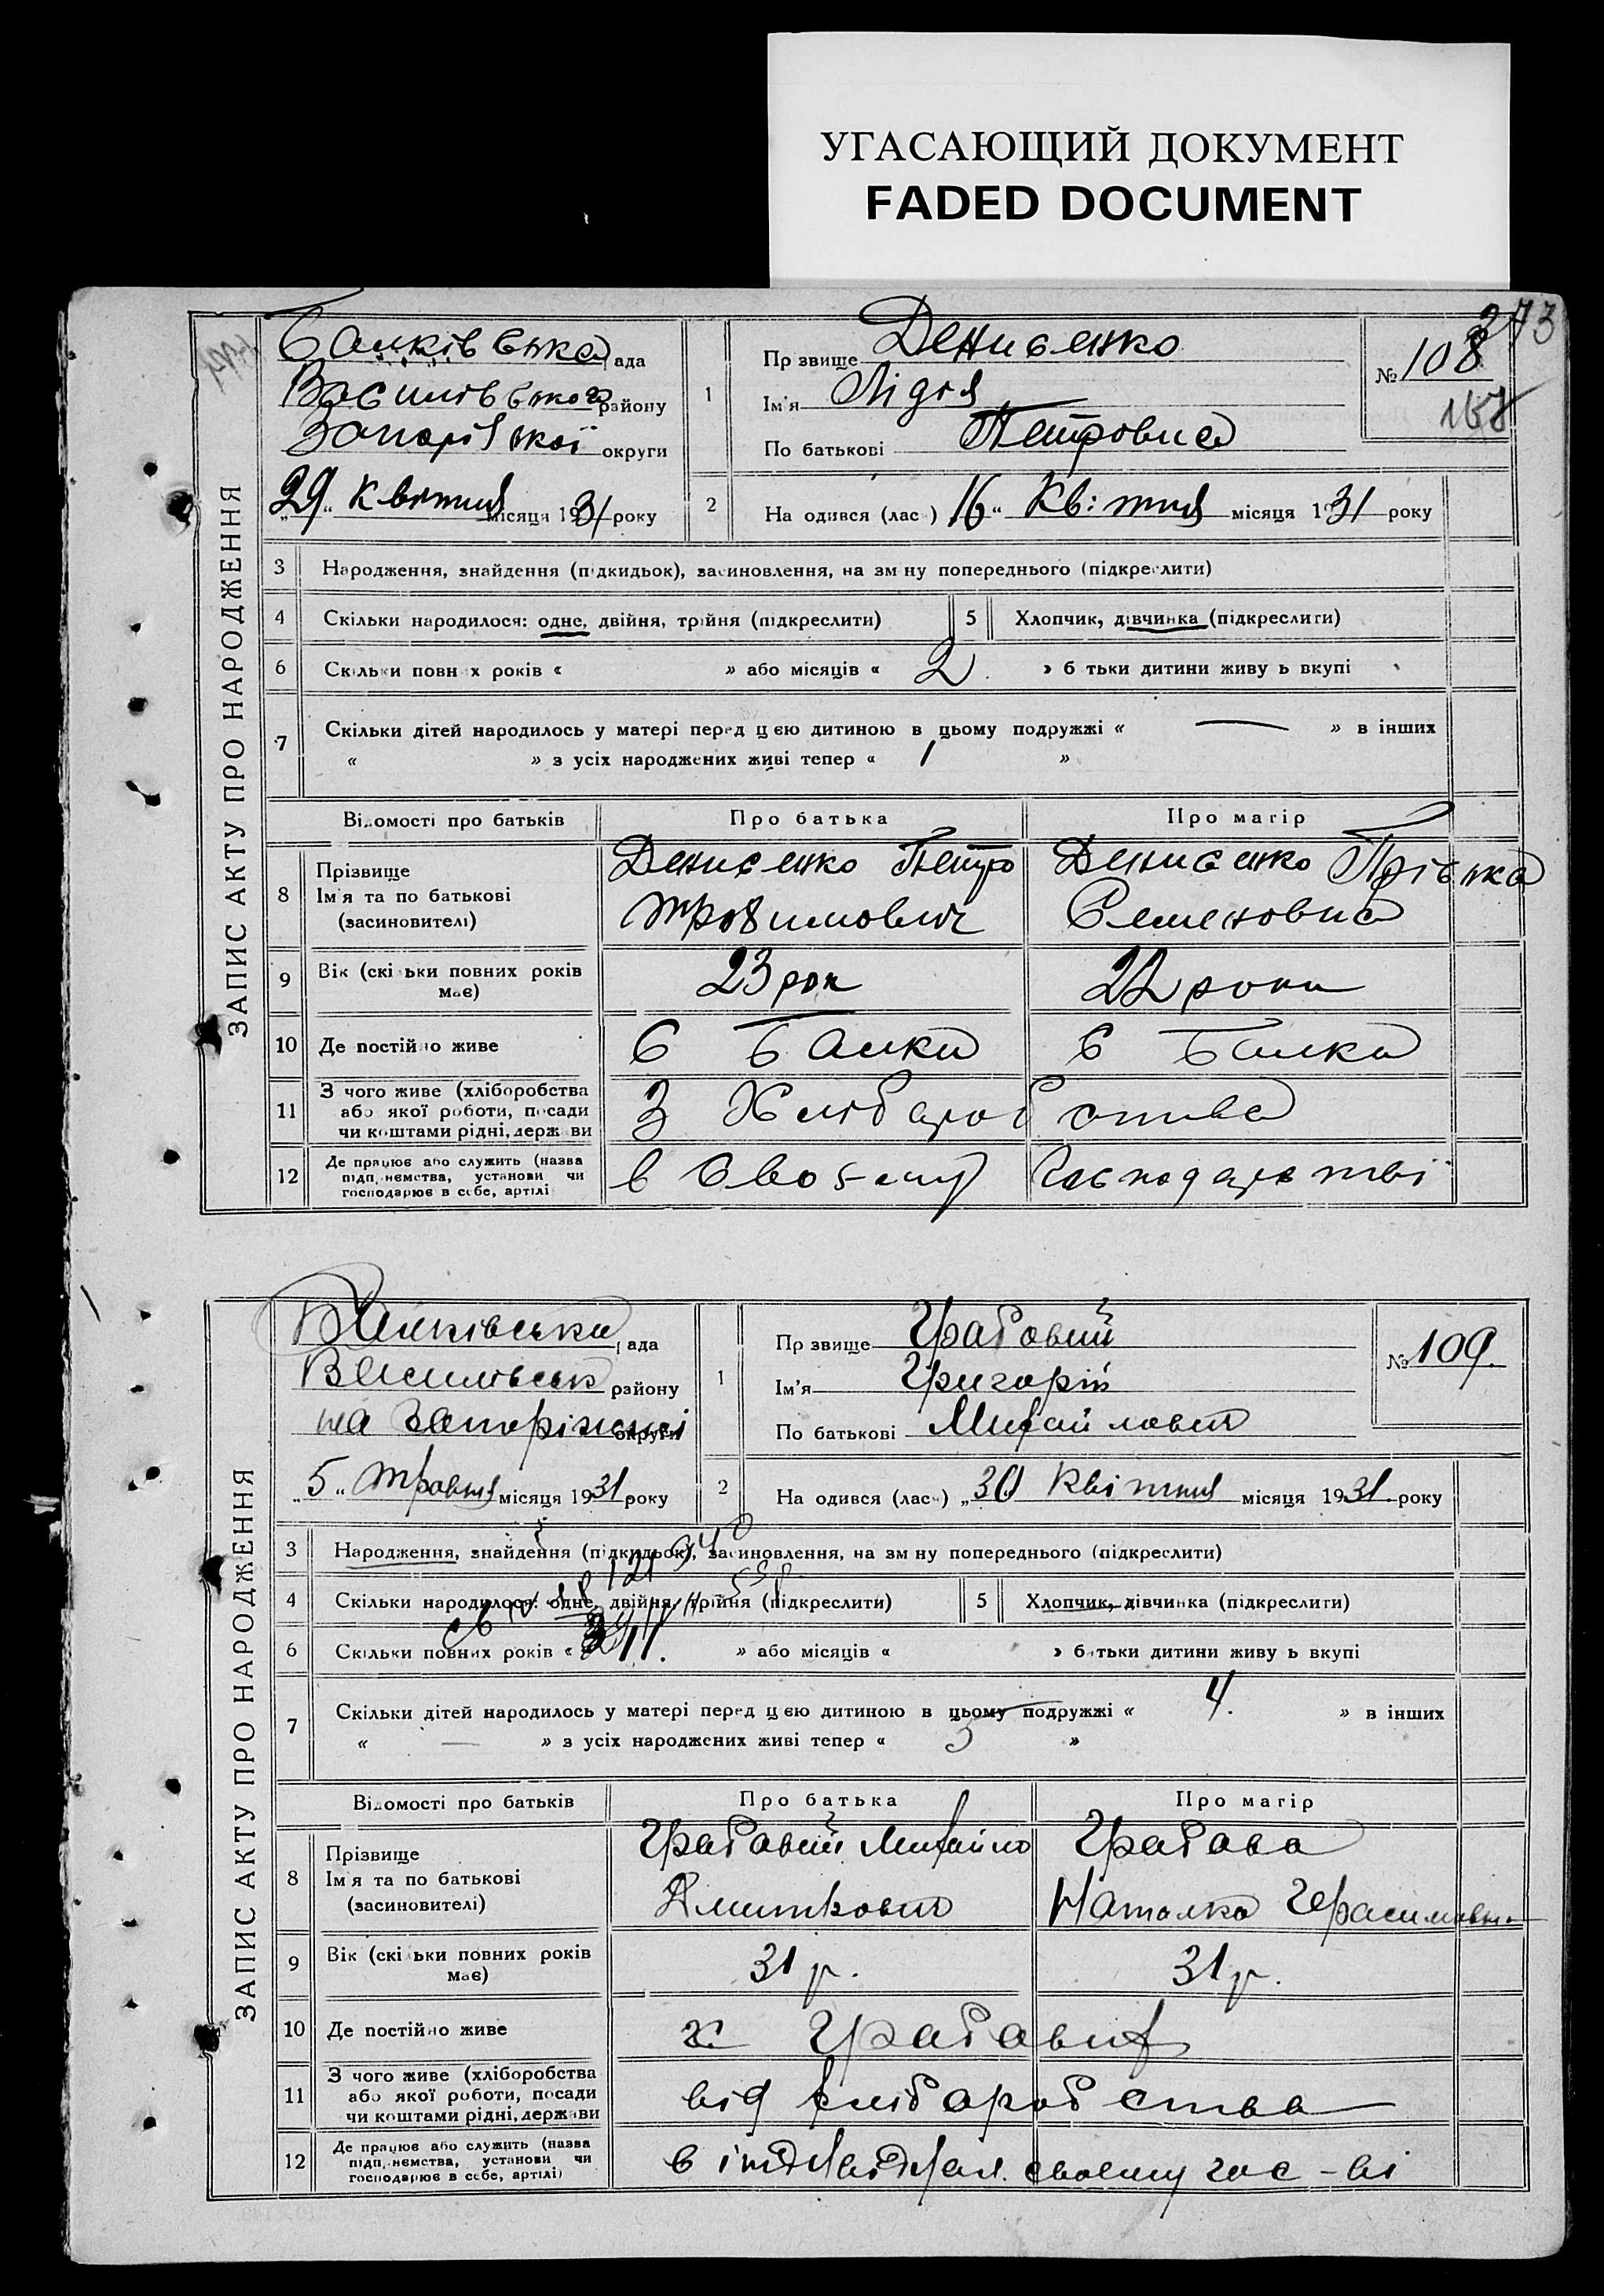 УГАСАЮЩИЙ ДОКУМЕНТ
FADED DOCUMENT
373
ЗАПИС АКТУ ПРО НАРОДЖЕННЯ
Балківська рада
району
округи
29 квітня місяця 1931 року
1
Прзвище Денисенко
Ім'я Лідія
По батькові Петровна
№ 108
2
На одився (лас) 16 " Кв:тня місяця 1931 року
3 Народження, знайдення (підкидьок), засиновлення, на зм ну попереднього (підкреслити)
4 Скільки народилося: одне, двійня, трійня (підкреслити) 5 Хлопчик, дівчинка (підкреслити)
6 Скільки повн х років « » або місяців « 2 » б тьки дитини живу ь вкупі
7 Скільки дітей народилось у матері перед цею дитиною в цьому подружжі « — » в інших
« » з усіх народжених живі тепер « 1 »
Відомості про батьків Про батька Про матір
8 Прізвище
Ім'я та по батькові
(засиновителі)
Денисенко Петро
Трохимович
Денисенко Пріська
Семеновна
9 Вік (скі ьки повних років
має) 23 рок 22 роки
10 Де постійно живе с Балки с Балка
11 З чого живе (хліборобства
або якої роботи, посади
чи коштами рідні, держ ви З Хліборобства
12 Де працює або служить (назва
підп.немства, установи чи
господарює в себе, артілі в Своєму Господарстві
ЗАПИС АКТУ ПРО НАРОДЖЕННЯ
Балківська рада
Василівськ району
на Запоріжжі округи
„5" Травня місяця 1931 року
1
Пр звище Грабовий
Ім'я Григорій
По батькові Михайлович
№ 109.
2
На одився (лас) „30 Квітня місяця 1931. року
3 Народження, знайдення (підкидьок), засиновлення, на зм ну попереднього (підкреслити)
4 Скільки народилося: одне, двійня, трійня (підкреслити) 5 Хлопчик, дівчинка (підкреслити)
6 Скільки повних років « » або місяців « » батьки дитини живу ь вкупі
7 Скільки дітей народилось у матері перед цею дитиною в цьому подружжі « 4. » в інших
« — » з усіх народжених живі тепер « 5 »
Відомості про батьків Про батька Про матір
8 Прізвище
Ім'я та по батькові
(засиновителі)
Грабовий Михайло
Дмитрович
Грабова
Наталка Герасимовна
9 Вік (скі ьки повних років
має) 31 р. 31 р.
10 Де постійно живе х Грабових
11 З чого живе (хліборобства
або якої роботи, посади
чи коштами рідні, держави від хліборобства
12 Де працює або служить (назва
підп.немства, установи чи
господарює в себе, артілі) своєму гос-ві